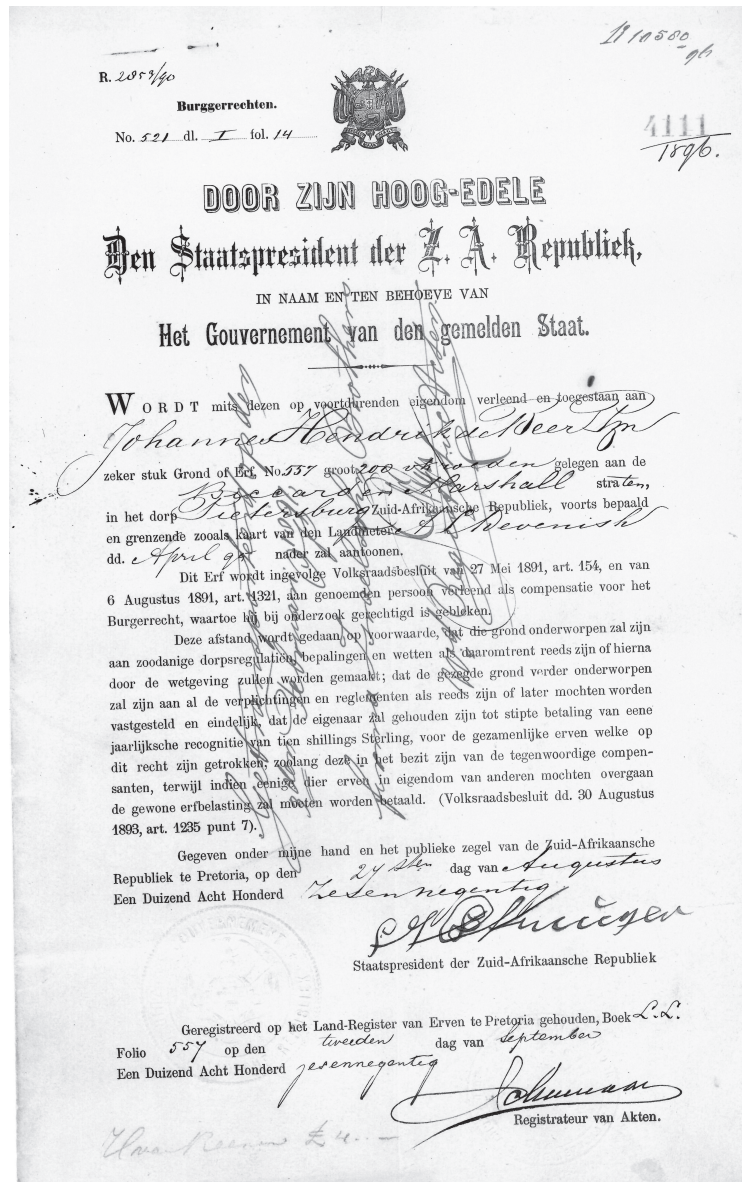 R. 2853/90
Burggerrechten.
No. 521 dl. I fol. 14
4111
1896.
DOOR ZIJN HOOG-EDELE
Den Staatspresident der Z. A. Republiek,
IN NAAM EN TEN BEHOEVE VAN
Het Gouvernement van den gemelden Staat.
WORDT mits dezen op voortdurenden eigendom verleend en toegestaan aan
Johannes Hendrik de Beer
zeker stuk Grond of Erf, No. 557 groot 200 vk roeden gelegen aan de
Boccard en Marshall straten,
in het dorp Pietersburg Zuid-Afrikaansche Republiek, voorts bepaald
en grenzende zooals kaart van den Landmeter A L Devenish
dd. April 95 nader zal aantoonen.
Dit Erf wordt ingevolge Volksraadsbesluit van 27 Mei 1891, art. 154, en van
6 Augustus 1891, art. 1321, aan genoemden persoon verleend als compensatie voor het
Burgerrecht, waartoe hij bij onderzoek gerechtigd is gebleken.
Deze afstand wordt gedaan op voorwaarde, dat die grond onderworpen zal zijn
aan zoodanige dorpsregulatiën, bepalingen en wetten als daaromtrent reeds zijn of hierna
door de wetgeving zullen worden gemaakt; dat de gezegde grond verder onderworpen
zal zijn aan al de verplichtingen en reglementen als reeds zijn of later mochten worden
vastgesteld en eindelijk, dat de eigenaar zal gehouden zijn tot stipte betaling van eene
jaarlijksche recognitie van tien shillings Sterling, voor de gezamenlijke erven welke op
dit recht zijn getrokken; zoolang deze in het bezit zijn van de tegenwoordige compen-
santen, terwijl indien eenige dier erven in eigendom van anderen mochten overgaan
de gewone erfbelasting zal moeten worden betaald. (Volksraadsbesluit dd. 30 Augustus
1893, art. 1235 punt 7).
Gegeven onder mijne hand en het publieke zegel van de Zuid-Afrikaansche
Republiek te Pretoria, op den 24sten dag van Augustus
Een Duizend Acht Honderd Zesennegentig
Staatspresident der Zuid-Afrikaansche Republiek
Geregistreerd op het Land-Register van Erven te Pretoria gehouden, Boek L.L.
Folio 557 op den tweeden dag van September
Een Duizend Acht Honderd zesennegentig
Registrateur van Akten.